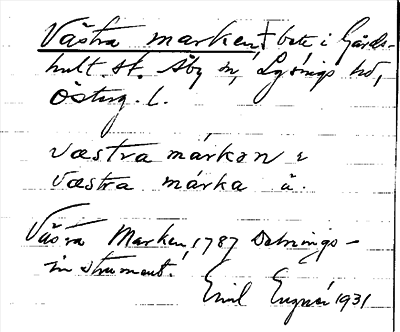 Västra marken, † bete i Gårds-
hult. St. Åby sn, Lysings hd,
Österg. l.
væstra márkən l
væstra márka ä.
Västra Marken, 1787 Delnings-
instrument.
Emil 1931